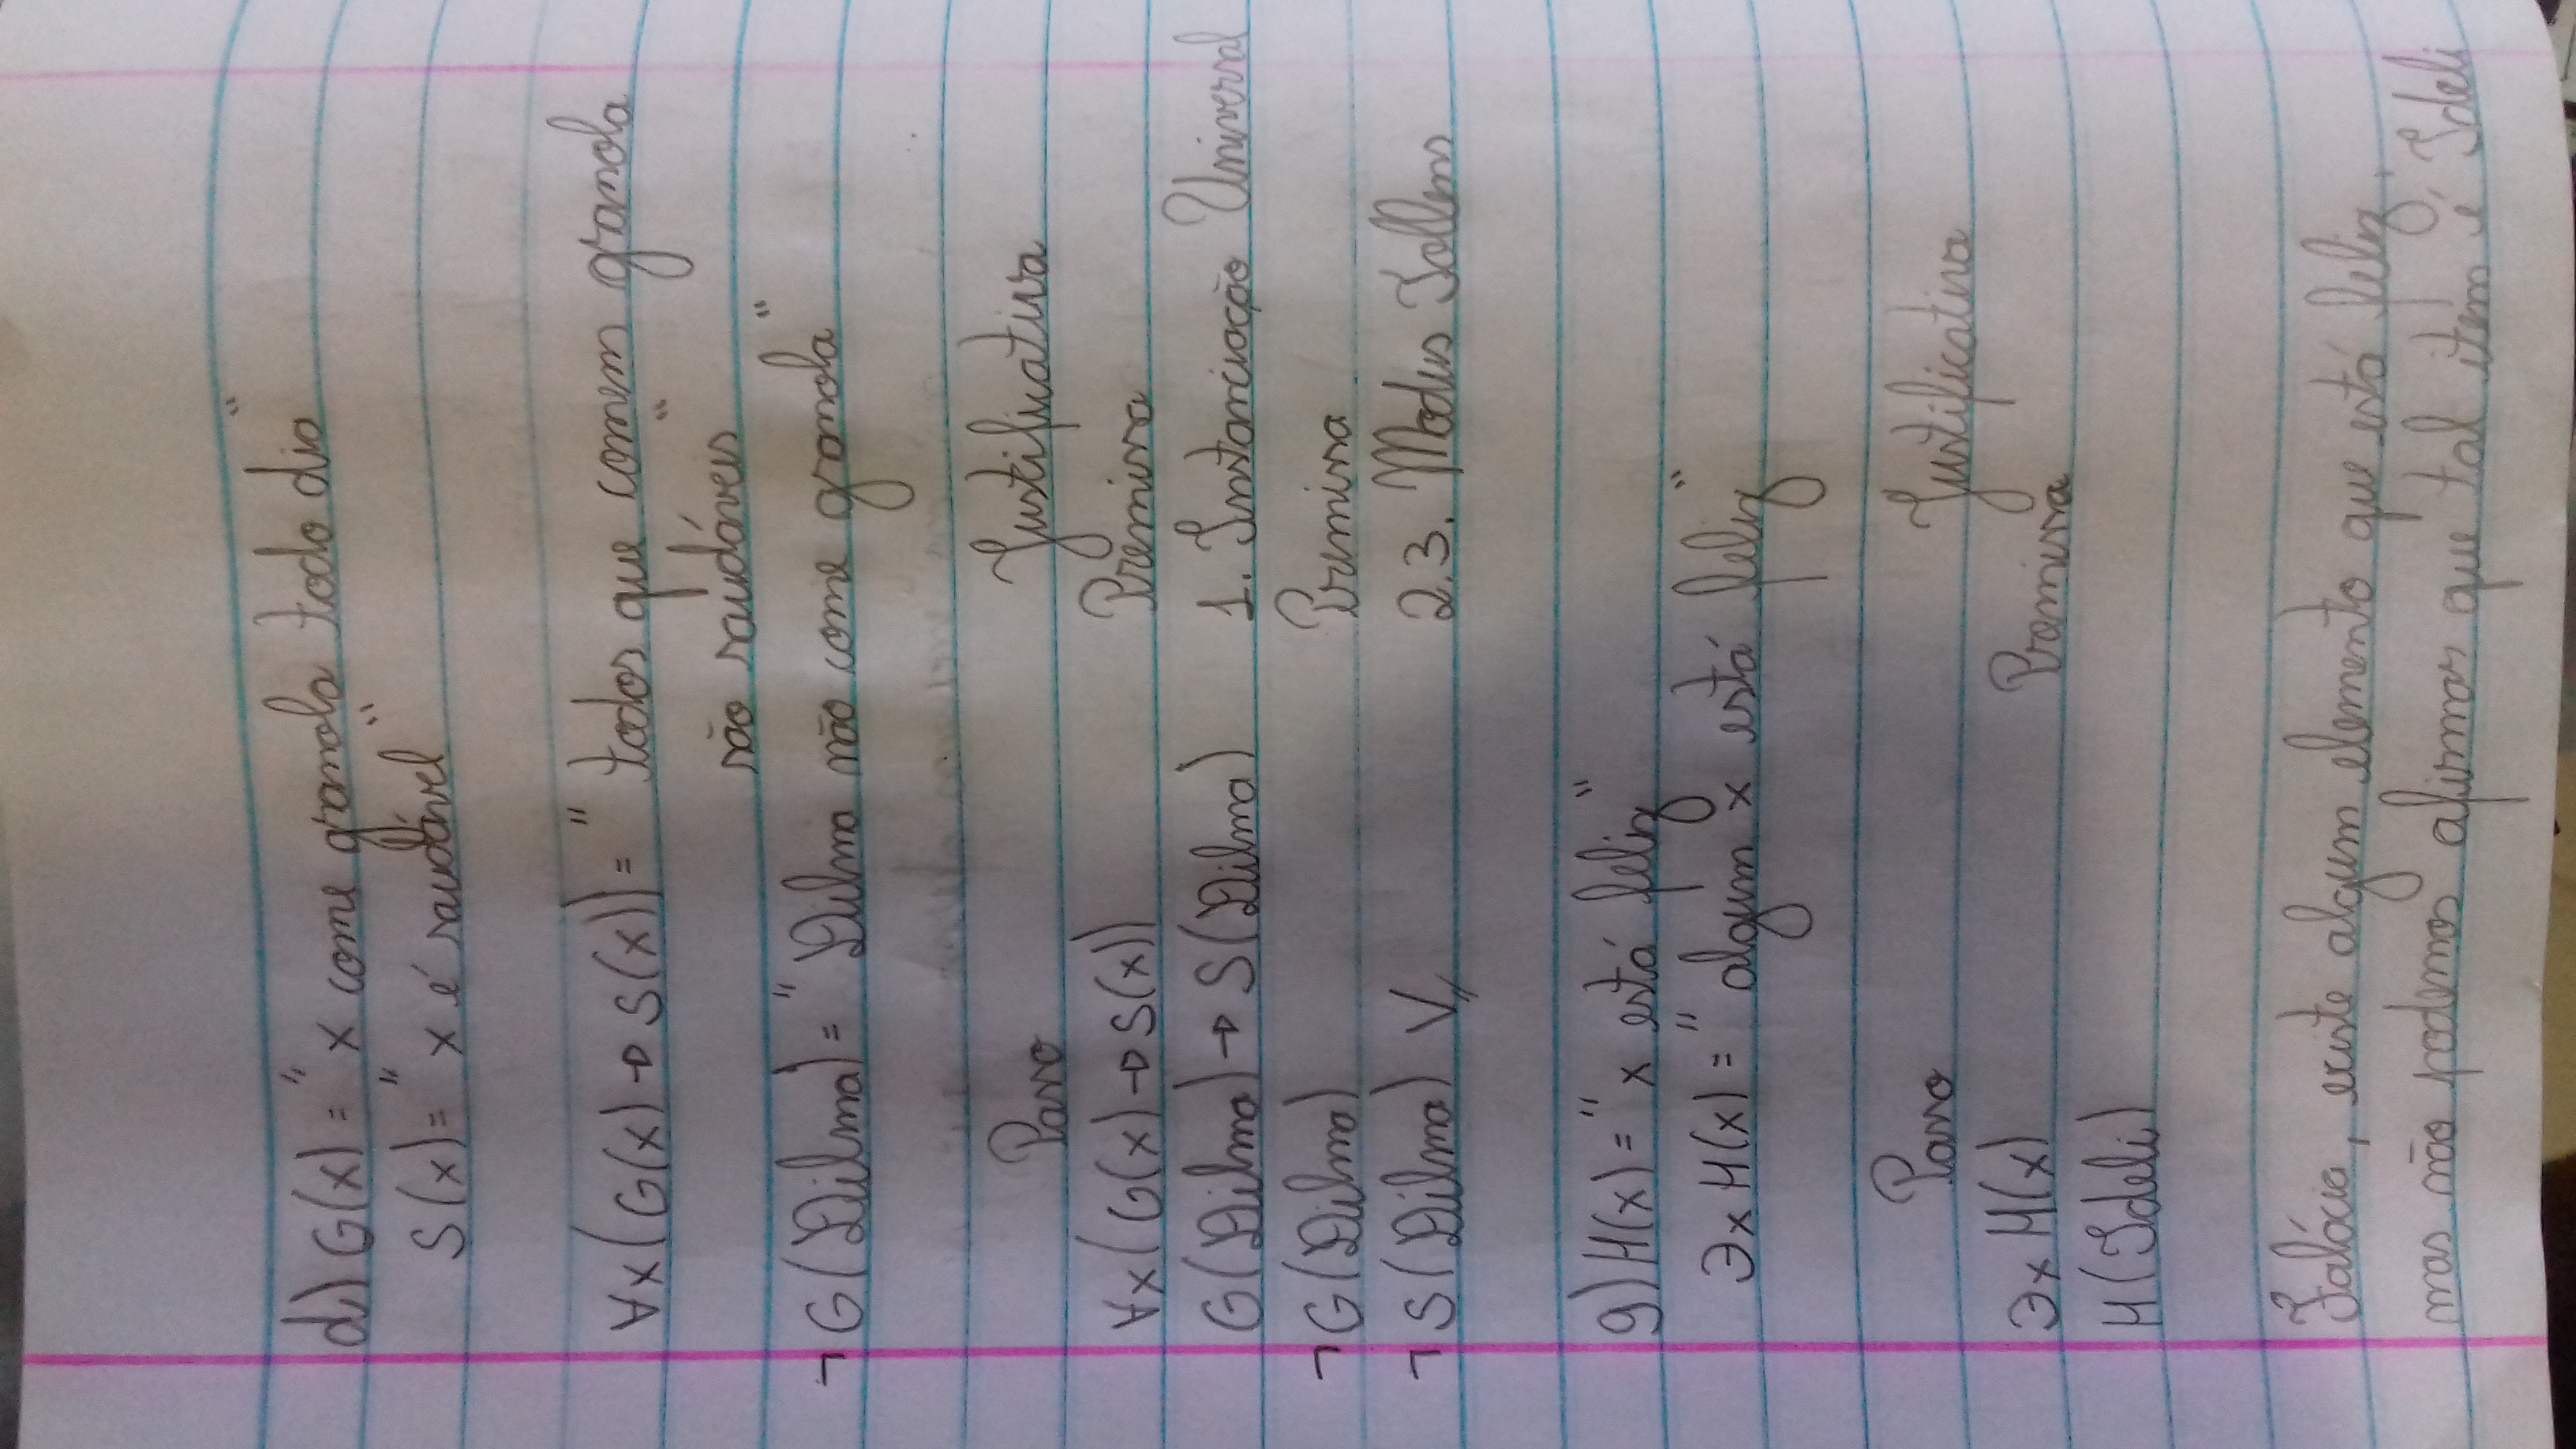 d) G(x) = "x come granola todo dia"
S(x) = "x é saudável"
∀x(G(x) → S(x)) = "todos que comem granola
são saudáveis"
¬G(Dilma) = "Dilma não come granola"
Passo Justificativa
∀x(G(x) → S(x)) Premissa
G(Dilma) → S(Dilma) 1. Instanciação Universal
¬G(Dilma) Premissa
¬S(Dilma) V,, 2.3. Modus Tollens
g) H(x) = "x está feliz"
∃x H(x) = "algum x está feliz"
Passo Justificativa
∃x H(x) Premissa
H(Ideli)
Falácia, existe algum elemento que está feliz,
mas não podemos afirmar que tal item é Ideli